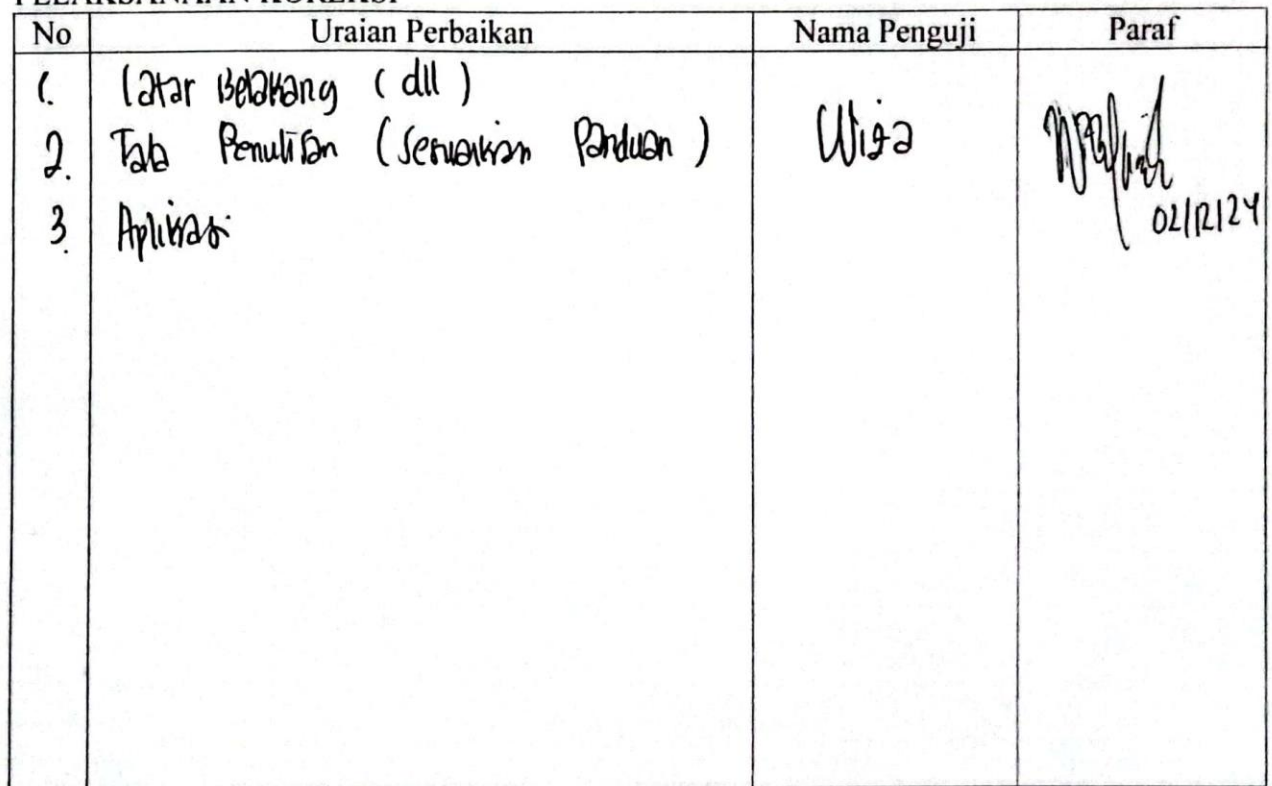 PELAKSANAAN KOREKSI
No Uraian Perbaikan Nama Penguji Paraf
1. Latar Belakang (dll)
2. Tata Penulisan (Sesuaikan Panduan) Wira
02/12/24
3. Aplikasi